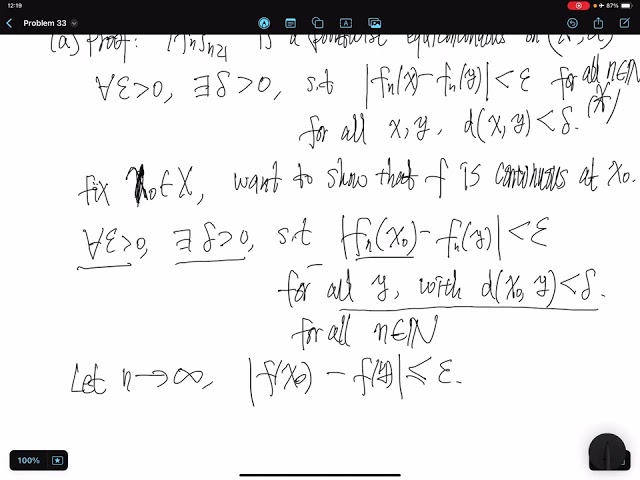 12:19
87%
Problem 33
(a) Proof: {fn}n≥1 is a pointwise equicontinuous on (X, d)
∀ε>0, ∃δ>0, s.t |fn(x)-fn(y)|<ε for all n∈ℕ
for all x, y, d(x, y)<δ. (*)
fix x₀∈X, want to show that f is continuous at x₀.
∀ε>0, ∃δ>0, s.t |fn(x₀)-fn(y)|<ε
for all y, with d(x₀, y)<δ.
for all n∈ℕ
Let n→∞, |f(x₀)-f(y)|≤ε.
100%